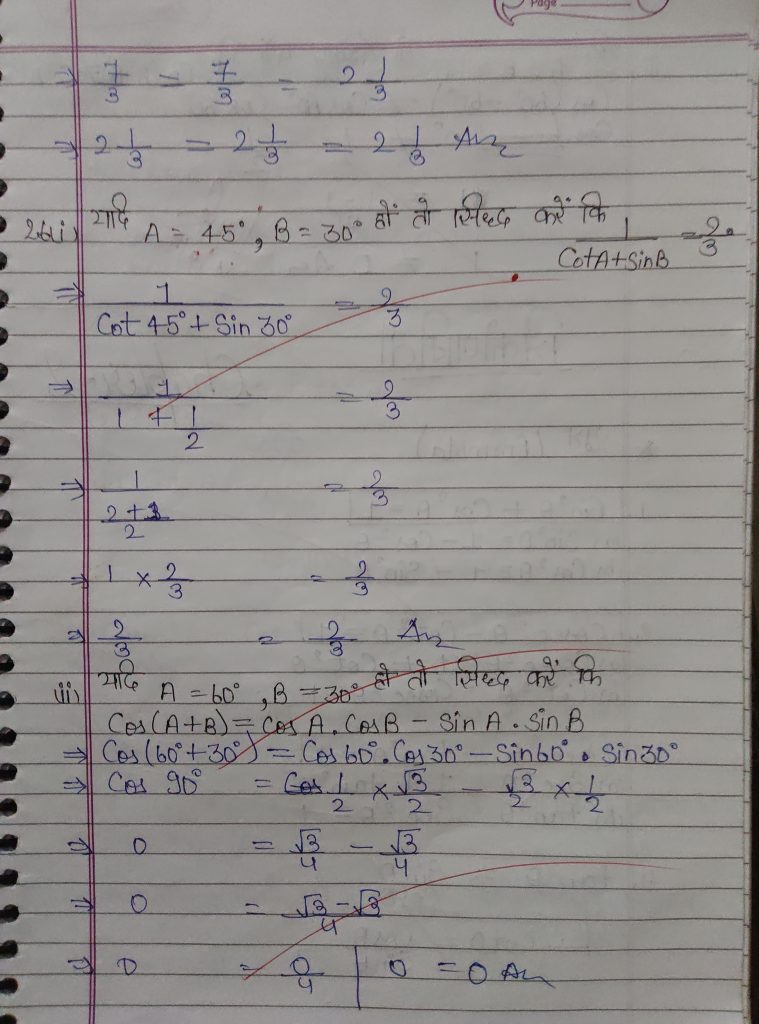 Page
⇒ 7/3 = 7/3 = 2 1/3
⇒ 2 1/3 = 2 1/3 = 2 1/3 Ans
26(i) यदि A = 45°, B = 30° हों तो सिद्ध करें कि 1/(CotA+SinB) = 2/3
⇒ 1/(Cot 45° + Sin 30°) = 2/3
⇒ 1/(1 + 1/2) = 2/3
⇒ 1/((2+1)/2) = 2/3
⇒ 1 × 2/3 = 2/3
⇒ 2/3 = 2/3 Ans
(ii) यदि A = 60°, B = 30° हो तो सिद्ध करें कि
Cos(A+B) = Cos A . CosB - Sin A . Sin B
⇒ Cos(60°+30°) = Cos 60° . Cos 30° - Sin 60° . Sin 30°
⇒ Cos 90° = 1/2 × √3/2 - √3/2 × 1/2
⇒ 0 = √3/4 - √3/4
⇒ 0 = (√3-√3)/4
⇒ 0 = 0/4 | 0 = 0 Ans